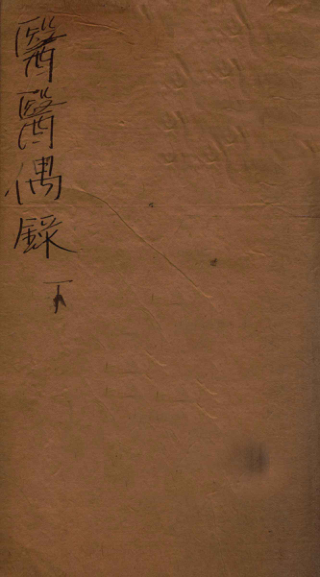 醫醫偶錄 下